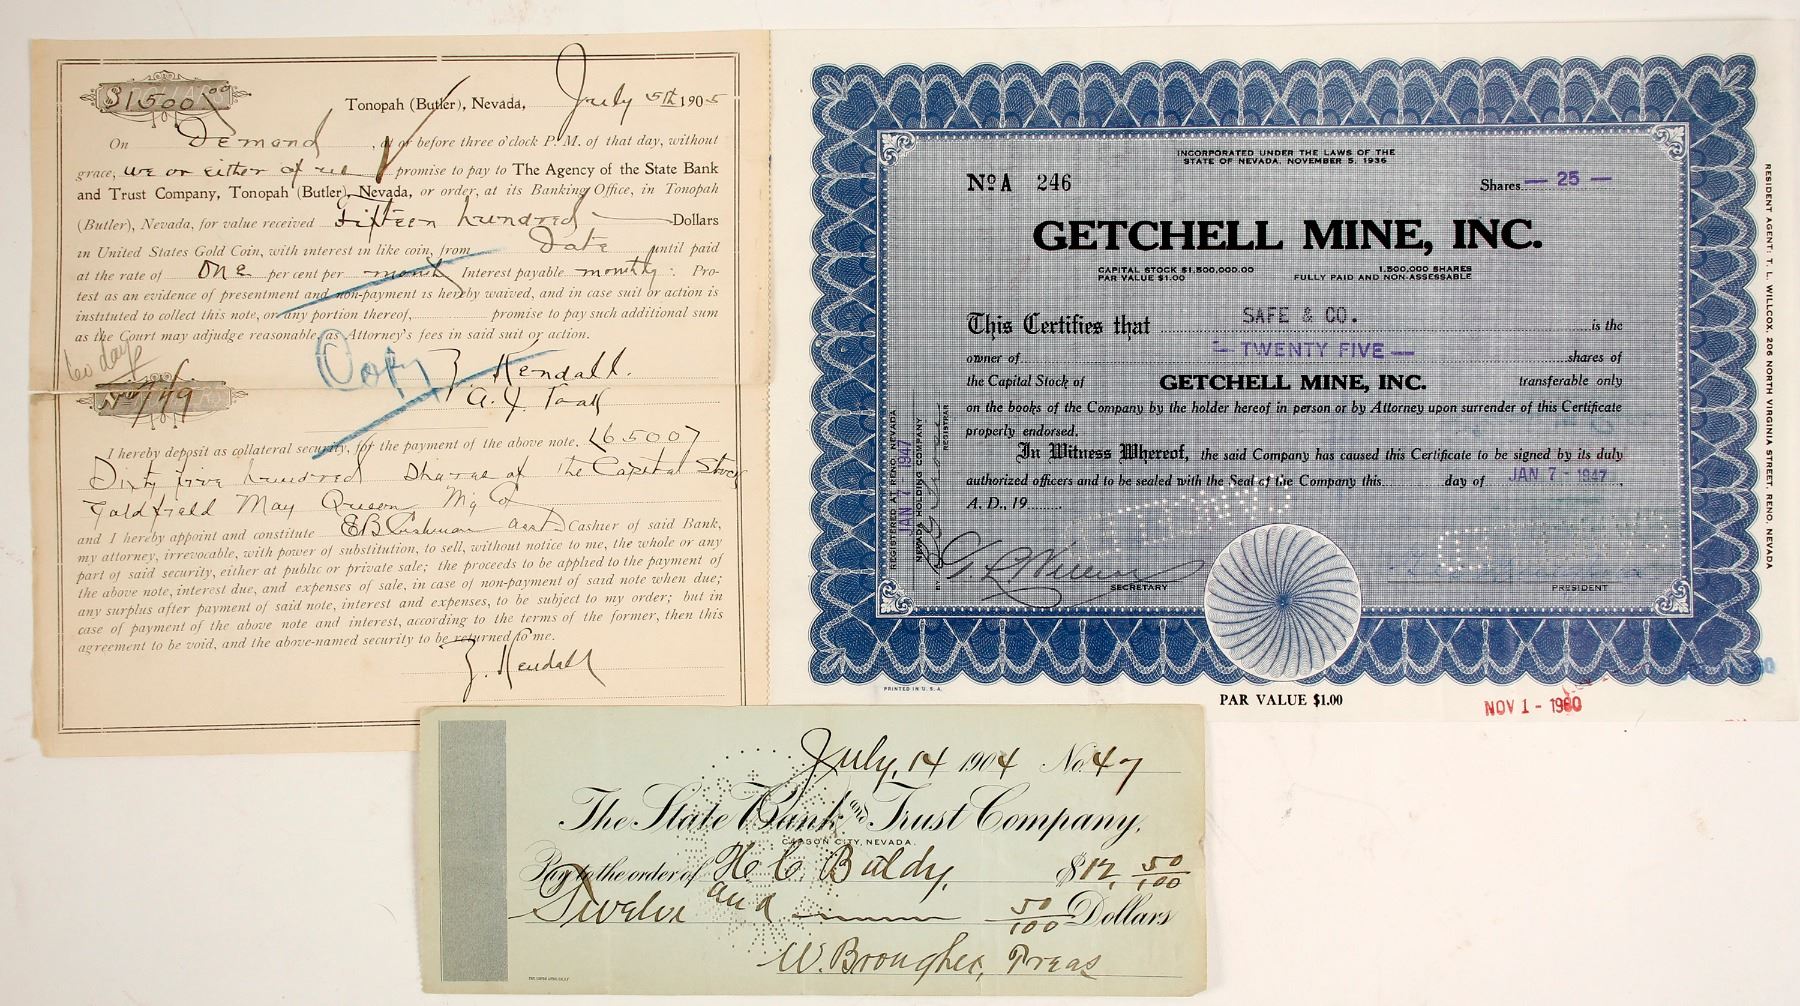 $1500.00
Tonopah (Butler), Nevada, July 5th 1905
On Demand, at or before three o'clock P. M. of that day, without
grace, we or either of us promise to pay to The Agency of the State Bank
and Trust Company, Tonopah (Butler), Nevada, or order, at its Banking Office, in Tonopah
(Butler), Nevada, for value received Fifteen hundred Dollars
in United States Gold Coin, with interest in like coin, from Date until paid
at the rate of One per cent per month Interest payable monthly. Pro-
test as an evidence of presentment and non-payment is hereby waived, and in case suit or action is
instituted to collect this note, or any portion thereof, promise to pay such additional sum
as the Court may adjudge reasonable, as Attorney's fees in said suit or action.
Copy
Z. Kendall.
A. J.
No. 749
I hereby deposit as collateral security, for the payment of the above note, (6500)
Sixty five hundred Shares of the Capital Stock
Goldfield May Queen Mg Co
and I hereby appoint and constitute E B Cushman asst Cashier of said Bank,
my attorney, irrevocable, with power of substitution, to sell, without notice to me, the whole or any
part of said security, either at public or private sale; the proceeds to be applied to the payment of
the above note, interest due, and expenses of sale, in case of non-payment of said note when due;
any surplus after payment of said note, interest and expenses, to be subject to my order; but in
case of payment of the above note and interest, according to the terms of the former, then this
agreement to be void, and the above-named security to be returned to me.
Z. Kendall
INCORPORATED UNDER THE LAWS OF THE
STATE OF NEVADA, NOVEMBER 5, 1936
No A 246
Shares — 25 —
GETCHELL MINE, INC.
CAPITAL STOCK $1,500,000.00
PAR VALUE $1.00
1,500,000 SHARES
FULLY PAID AND NON-ASSESSABLE
This Certifies that SAFE & CO. is the
owner of — TWENTY FIVE — shares of
the Capital Stock of GETCHELL MINE, INC. transferable only
on the books of the Company by the holder hereof in person or by Attorney upon surrender of this Certificate
properly endorsed.
In Witness Whereof, the said Company has caused this Certificate to be signed by its duly
authorized officers and to be sealed with the Seal of the Company this day of JAN 7 - 1947
A. D., 19
CANCELLED
CANCELLED
SECRETARY
PRESIDENT
REGISTERED AT RENO, NEVADA
JAN 7 - 1947
NEVADA HOLDING COMPANY
BY
REGISTRAR
RESIDENT AGENT: T. L. WILLCOX, 206 NORTH VIRGINIA STREET, RENO, NEVADA
PRINTED IN U. S. A.
PAR VALUE $1.00
NOV 1 - 1960
July 14 1904 No. 47
The State Bank and Trust Company,
CARSON CITY, NEVADA.
Pay to the order of H. C. Baldy, $12, 50/100
Twelve and 50/100 Dollars
W. Brougher, Treas